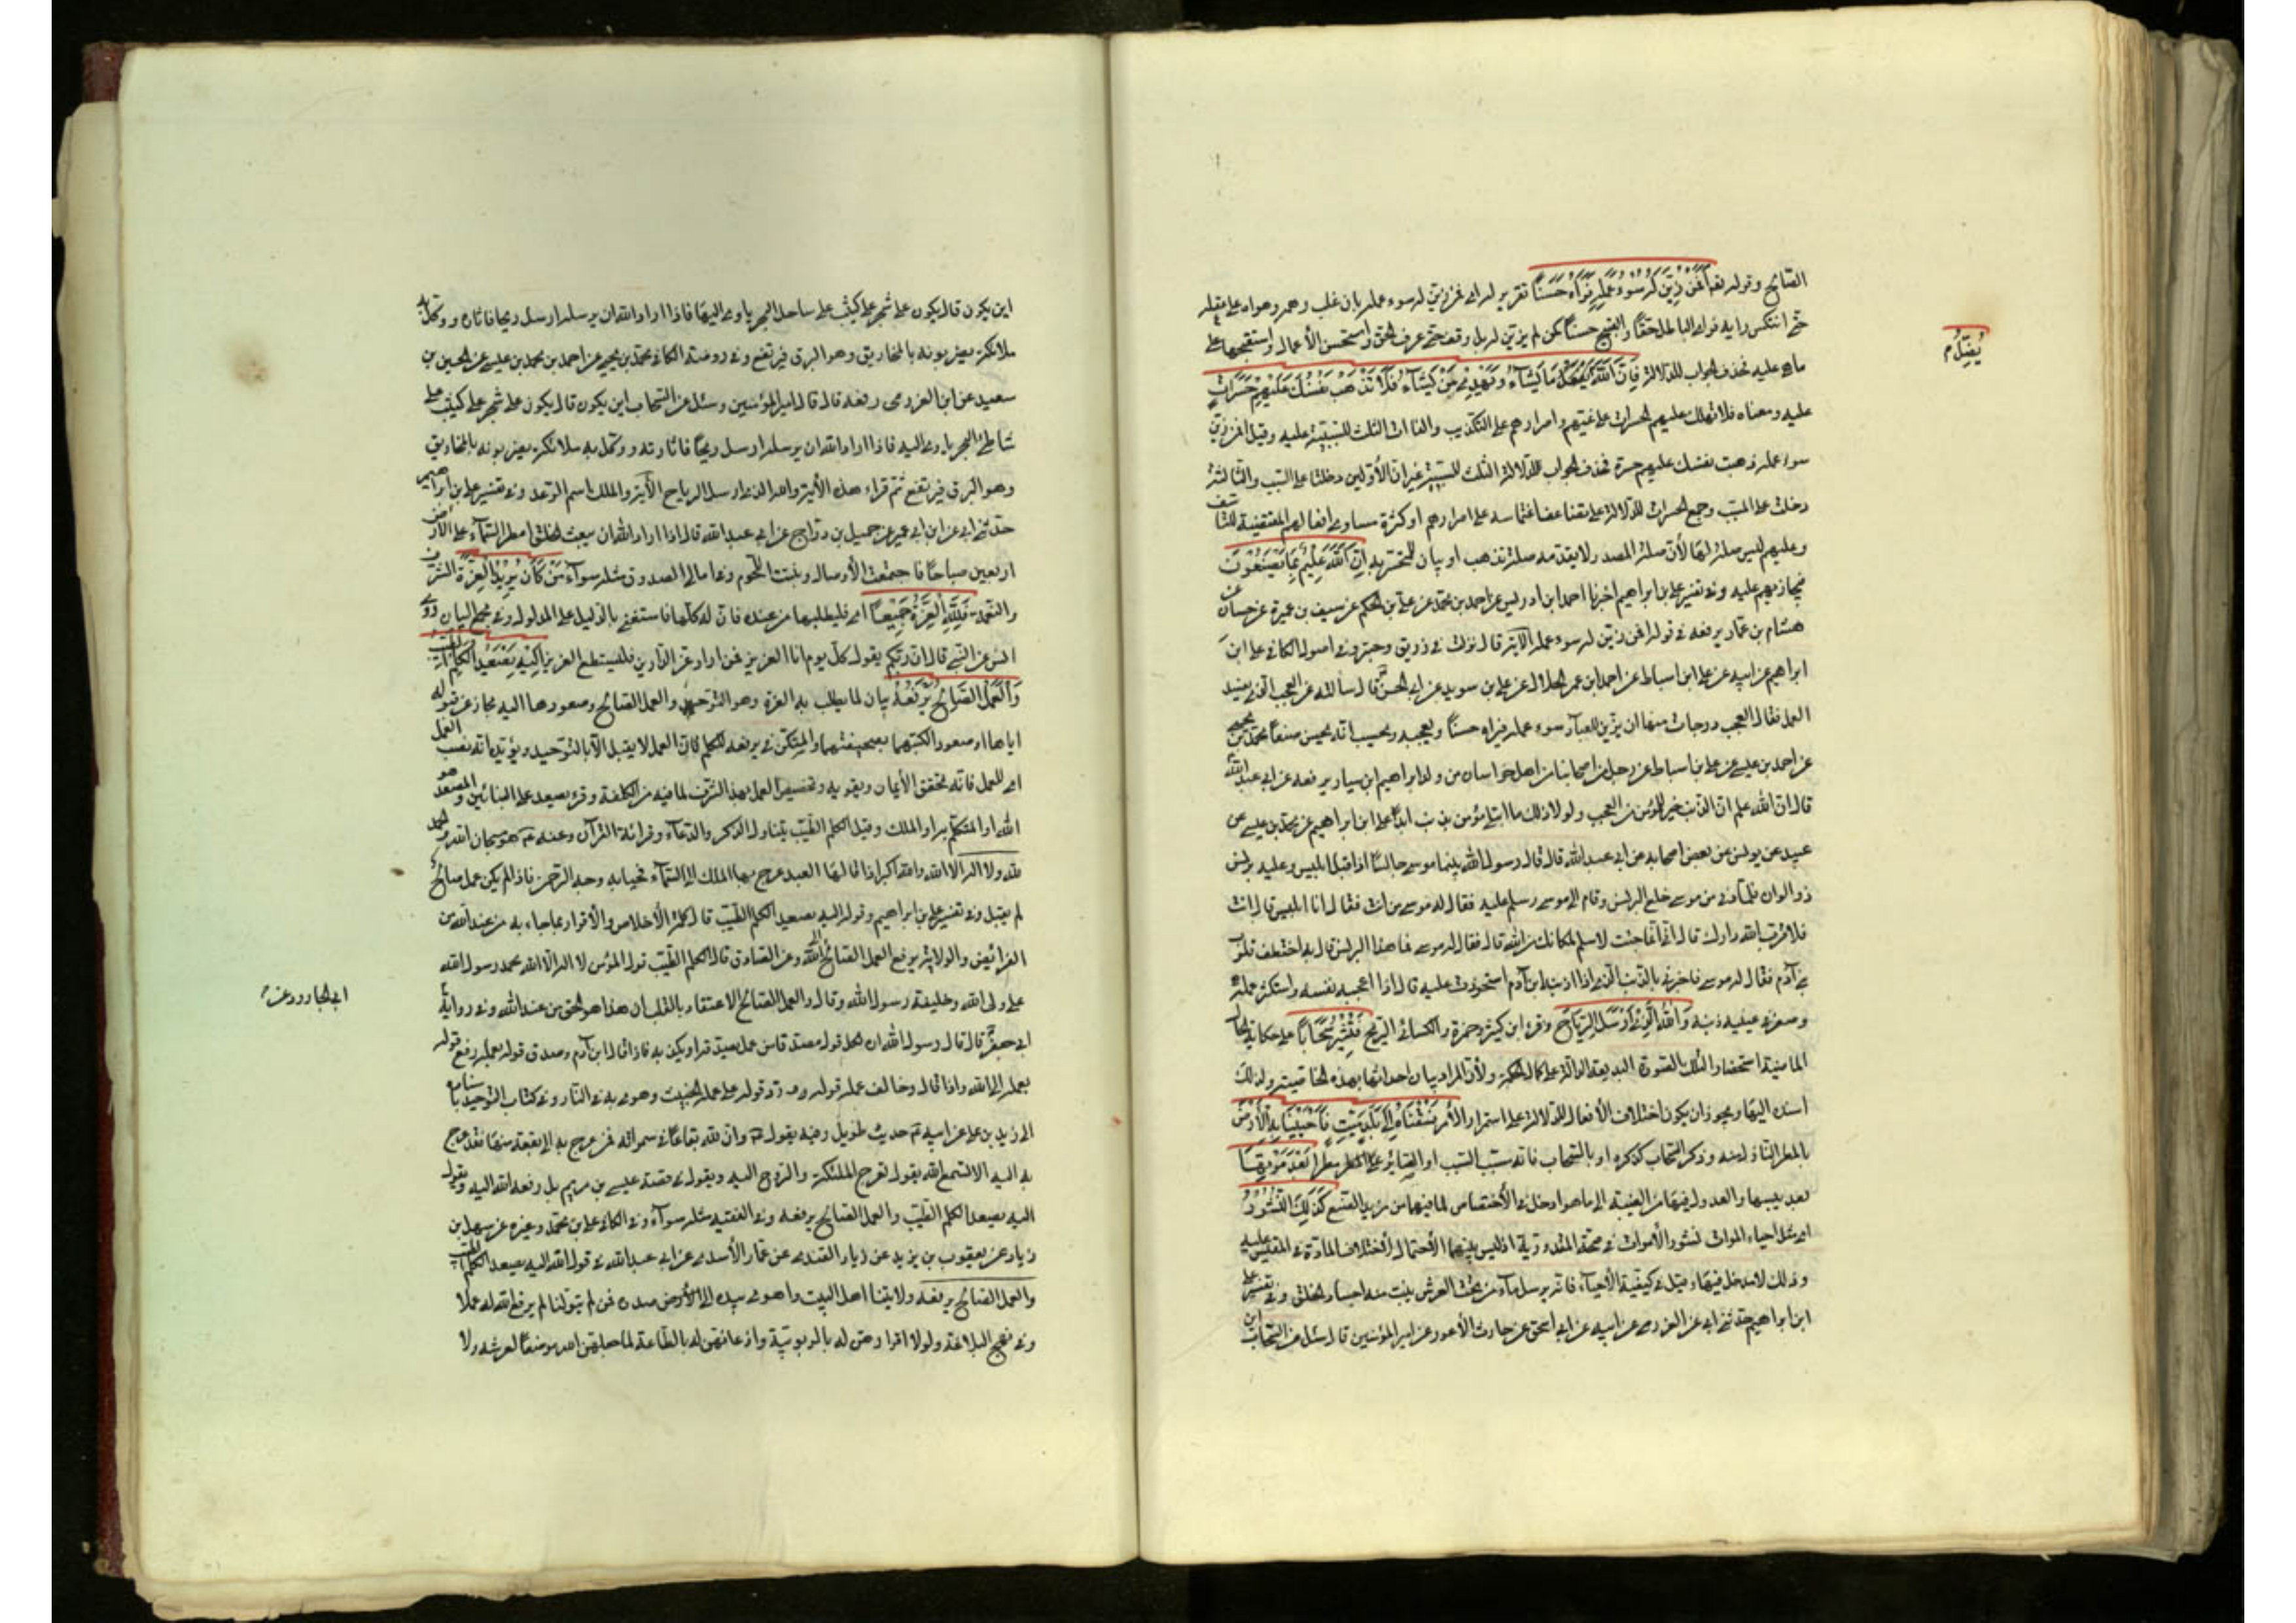 الصالح وقوله تعالى أَفَمَنْ زُيِّنَ لَهُ سُوءُ عَمَلِهِ فَرَآهُ حَسَنًا تقرير له اي فمن زين له سوء عمله بان غلب وهمه وهواه على عقله
حتى انتكس رايه فراى الباطل حقاً والقبيح حسناً كمن لم يزين له بل وفق حتى عرف الحق واستحسن الأعمال واستقبحها على
ما هي عليه فحذف الجواب لدلالة فَإِنَّ اللَّهَ يُضِلُّ مَنْ يَشَآءُ وَيَهْدِي مَنْ يَشَآءُ فَلَا تَذْهَبْ نَفْسُكَ عَلَيْهِمْ حَسَرَاتٍ
يُضِلُّ
عليه ومعناه فلا تهلك عليهم للحسرات على غيهم واصرارهم على التكذيب والفاات الثلث للسببية عليه وقيل افمن زين
سوء عمله ذهبت نفسك عليهم حسرة فحذف الجواب للدلالة الثلث للسببية غير ان الأولين دخلتا على السبب والثالثة
دخلت على المسبب وجمع الحسرات للدلالة على تضاعف اغتمامه على اصرارهم او كثرة مساوى افعالهم المقتضية للتاسف
وعليهم ليس صلة لها لأن صلة المصدر لا يتقدمه صلة تذهب او بيان للمتحسر به اِنَّ اللَّهَ عَلِيمٌ بِمَا يَصْنَعُونَ
فيجازيهم عليه وفي تفسير علي بن ابراهيم اخبرنا احمد ابن ادريس عن احمد بن محمد عن علي بن الحكم عن سيف بن عميرة عن حسان عن
هشام بن عمار يرفعه في قوله افمن زين له سوء عمله الآية قال نزلت في زريق وحبتر وفي اصول الكافي على ابن
ابراهيم عن ابيه عن على ابن اسباط عن احمد ابن عمر الحلال عن على بن سويد عن ابى الحسن قال سالته عن العجب الذي يفسد
العمل فقال العجب درجات منها ان يزين للعبد سوء عمله فيراه حسناً ويعجبه ويحسب انه يحسن صنعاً محمد بن يحيى
عن احمد بن عيسى عن على بن اسباط عن رجل من اصحابنا من اهل خراسان من ولد ابراهيم ابن سيار يرفعه عن ابى عبد الله
قال ان الله علم ان الذنب خير للمؤمن من العجب ولولا ذلك ما ابتلي مؤمن بذنب ابداً على ابن ابراهيم عن محمد بن عيسى عن
عبيد عن يونس عن بعض اصحابه عن ابى عبد الله قال قال رسول الله بينما موسى جالسًا اذ اقبل ابليس وعليه برنس
ذو الوان فلما دنى من موسى خلع البرنس وقام الى موسى وسلم عليه فقال له موسى من انت فقال انا ابليس قال انت
فلا قرب الله دارك قال انى انما جئت لاسلم لمكانك من الله قال فقال له موسى فما هذا البرنس قال به اختطف قلوب
بنى آدم فقال له موسى فاخبرنى بالذنب الذى اذا اذنبه ابن آدم استحوذت عليه قال اذا اعجبته نفسه واستكثر عمله
وصغر فى عينيه ذنبه وَاللَّهُ الَّذِي اَرْسَلَ الرِّيَاحَ وقرء ابن كثير وحمزة والكسائى الريح فَتُثِيرُ سَحَابًا على حكاية الحال
الماضية استحضارا لتلك الصورة البديعة الدالة على كمال الحكمة ولأن المراد بيان احداثها بهذه الخاصية ولذلك
اسند اليها ويجوز ان يكون اختلاف الأفعال للدلالة على استمرار الأمر فَسُقْنَاهُ اِلَى بَلَدٍ مَيِّتٍ فَاَحْيَيْنَا بِهِ الْأَرْضَ
بالمطر النازل منه وذكر السحاب كذكره او بالسحاب فانه سبب السبب او الصاير مطرا بَعْدَ مَوْتِهَا
بعد يبسها والعدول فيهما من الغيبة الى ما هو ادخل فى الأختصاص لما فيهما من مزيد الصنع كَذَلِكَ النُّشُورُ
اى مثل احياء الموات نشور الأموات فى صحة المقدورية اذ ليس بينهما الأحتمال اختلاف المادة فى المقيس عليه
وذلك لا مدخل فيها وقيل فى كيفية الأحياء فانه يرسل ماء من تحت العرش ينبت منه اجساد الخلق وفى تفسير على
ابن ابراهيم حدثنى ابى عن العزرمى عن ابيه عن ابى اسحق عن حارث الأعور عن امير المؤمنين قال سئل عن السحاب اين
اين يكون قال يكون على شجر على كثيب على ساحل البحر ياوى اليها فاذا اراد الله ان يرسله ارسل ريحا فاثاره ووكل به
ملائكة يضربونه بالمخاريق وهو البرق فيرتفع وفى روضة الكافى محمد بن يحيى عن احمد بن محمد بن عيسى عن الحسين بن
سعيد عن ابن العزرمى رفعه قال قال امير المؤمنين وسئل عن السحاب اين يكون قال يكون على شجر على كثيب على
شاطئ البحر ياوى اليه فاذا اراد الله ان يرسله ارسل ريحًا فاثارته ووكل به ملائكة يضربونه بالمخاريق
وهو البرق فيرتفع ثم قراء هذه الأية والله الذى ارسل الرياح الآية والملك اسم الرعد وفى تفسير على بن ابراهيم
حدثنى ابى عن ابن ابى عمير عن جميل بن دراج عن ابى عبد الله قال اذا اراد الله ان يبعث الخلق امطر السماء على الأرض
اربعين صباحًا فاجتمعت الأوصال ونبتت اللحوم وفى امالى الصدوق مثله سوآء مَنْ كَانَ يُرِيدُ الْعِزَّةَ الشرف
والنعمة فَلِلَّهِ الْعِزَّةُ جَمِيعًا اى فليطلبها من عنده فان له كلها فاستغنى بالدليل على المدلول وفى مجمع البيان روى
انس عن النبى قال ان ربكم يقول كل يوم انا العزيز فمن اراد عز الدارين فليطع العزيز اِلَيْهِ يَصْعَدُ الْكَلِمُ الطَّيِّبُ
وَالْعَمَلُ الصَّالِحُ يَرْفَعُهُ بيان لما يطلب به العزة وهو التوحيد والعمل الصالح وصعودهما اليه مجاز عن قبوله
اياهما او صعود الكتبة بصحيفتهما والمستكن فى يرفعه للكلم فان العمل لا يقبل الا بالتوحيد ويؤيده انه نصب العمل
او للعمل فانه تحقق الأيمان ويقويه وتخصيص العمل بهذا الشرف لما فيه من الكلفة وقرء يصعد على البنائين والمصعد هو
الله او المتكلم به او الملك وقيل الكلم الطيب يتناول الذكر والدعاء وقرائة القرآن وعنه هو سبحان الله والحمد
لله ولا اله الا الله والله اكبر اذا قالها العبد عرج بها الملك الى السماء فحيا به وجه الرحمن فاذا لم يكن عمل صالح
لم يقبل وفى تفسير على بن ابراهيم وقوله اليه يصعد الكلم الطيب قال كلمة الأخلاص والأقرار بما جاء به من عند الله من
الفرائض والولاية يرفع العمل الصالح الى الله وعن الصادق قال الكلم الطيب قول المؤمن لا اله الا الله محمد رسول الله
على ولى الله وخليفة رسول الله وقال والعمل الصالح الاعتقاد بالقلب ان هذا هو الحق من عند الله وفى رواية
ابى الجارود عن
ابى جعفر قال قال رسول الله ان لكل قول مصداقا من عمل يصدقه او يكذبه فاذا قال ابن آدم وصدق قوله بعمله رفع قوله
بعمله الى الله واذا قال وخالف عمله قوله رد قوله على عمله الخبيث وهوى به فى النار وفى كتاب التوحيد باسناده
الى زيد بن على عن ابيه حديث طويل وفيه يقول وان لله بقاعًا فى سمواته فمن عرج به الى بقعة منها فقد عرج
به اليه الا تسمع الله يقول تعرج الملئكة والروح اليه ويقول فى قصة عيسى بن مريم بل رفعه الله اليه ويقول
اليه يصعد الكلم الطيب والعمل الصالح يرفعه وفى الفقيه مثله سوآء وفى الكافى على بن محمد وغيره عن سهل بن
زياد عن يعقوب بن يزيد عن زياد القندى عن عمار الأسدى عن ابى عبد الله فى قول الله اليه يصعد الكلم الطيب
والعمل الصالح يرفعه ولايتنا اهل البيت واهوى بيده الى صدره فمن لم يتولنا لم يرفع الله له عملا
وفى نهج البلاغة ولولا اقرارهن له بالربوبية واذعانهن له بالطاعة لما جعلهن موضعًا لعرشه ولا